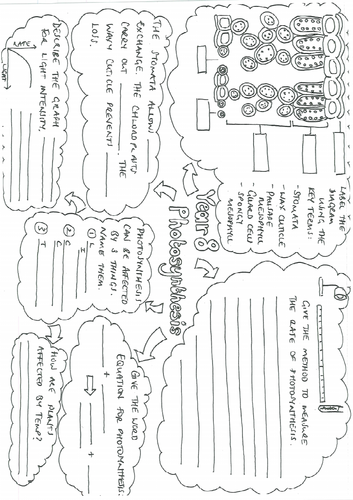 Year 8
Photosynthesis
LABEL THE
DIAGRAM
USING THE
KEY TERMS:
- STOMATA
- WAXY CUTICLE
- PALISADE
MESOPHYLL
- GUARD CELLS
- SPONGY
MESOPHYLL
GIVE THE METHOD TO MEASURE
THE RATE OF PHOTOSYNTHESIS.
THE STOMATA ALLOW
EXCHANGE. THE CHLOROPLASTS
CARRY OUT THE
WAXY CUTICLE PREVENTS
LOSS.
DESCRIBE THE GRAPH
FOR LIGHT INTENSITY.
RATE
LIGHT
PHOTOSYNTHESIS
CAN BE AFFECTED
BY 3 THINGS.
NAME THEM.
① L I
② C C
③ T
GIVE THE WORD
EQUATION FOR PHOTOSYNTHESIS:
+
+
HOW ARE PLANTS
AFFECTED BY TEMP?